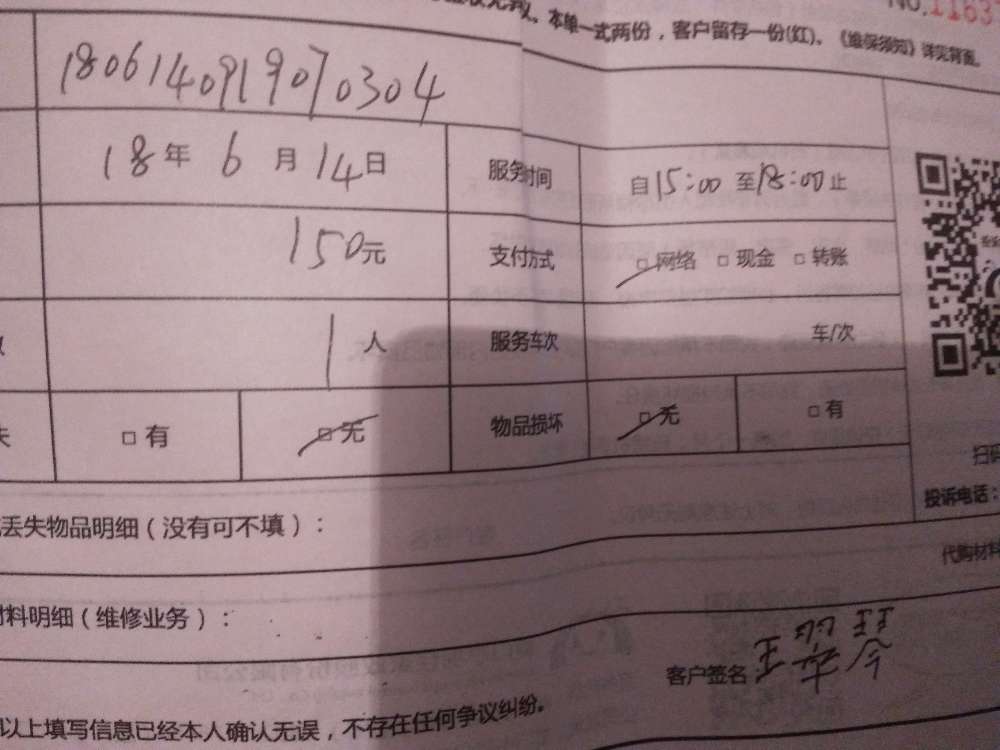 NO.1163
本单一式两份，客户留存一份(红)。《维保须知》详见背面。
1806140919070304
18年 6 月 14 日 服务时间 自15:00 至18:00止
150元 支付方式 □网络 □现金 □转账
1人 服务车次 车/次
失 □有 □无 物品损坏 □无 □有
扫码
丢失物品明细（没有可不填）：
投诉电话：
代购材料
材料明细（维修业务）：
客户签名：王翠琴
以上填写信息已经本人确认无误，不存在任何争议纠纷。